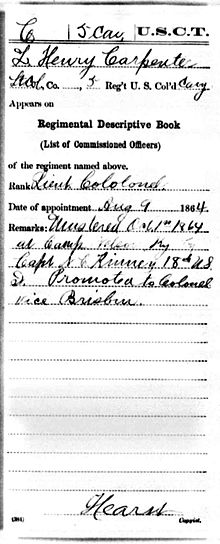 C | 5 Cav | U.S.C.T.
L. Henry Carpenter
, Co. , 5 Reg't U. S. Col'd Cavy
Appears on
Regimental Descriptive Book
(List of Commissioned Officers)
of the regiment named above.
Rank Lieut Colonel
Date of appointment Aug 9 1864.
Remarks: Mustered Oct 1st 1864
at Camp Ky by
Capt Kinney 18th U.S.
I. Promoted to Colonel
vice Brisbin.
Hearst
(384) Copyist.